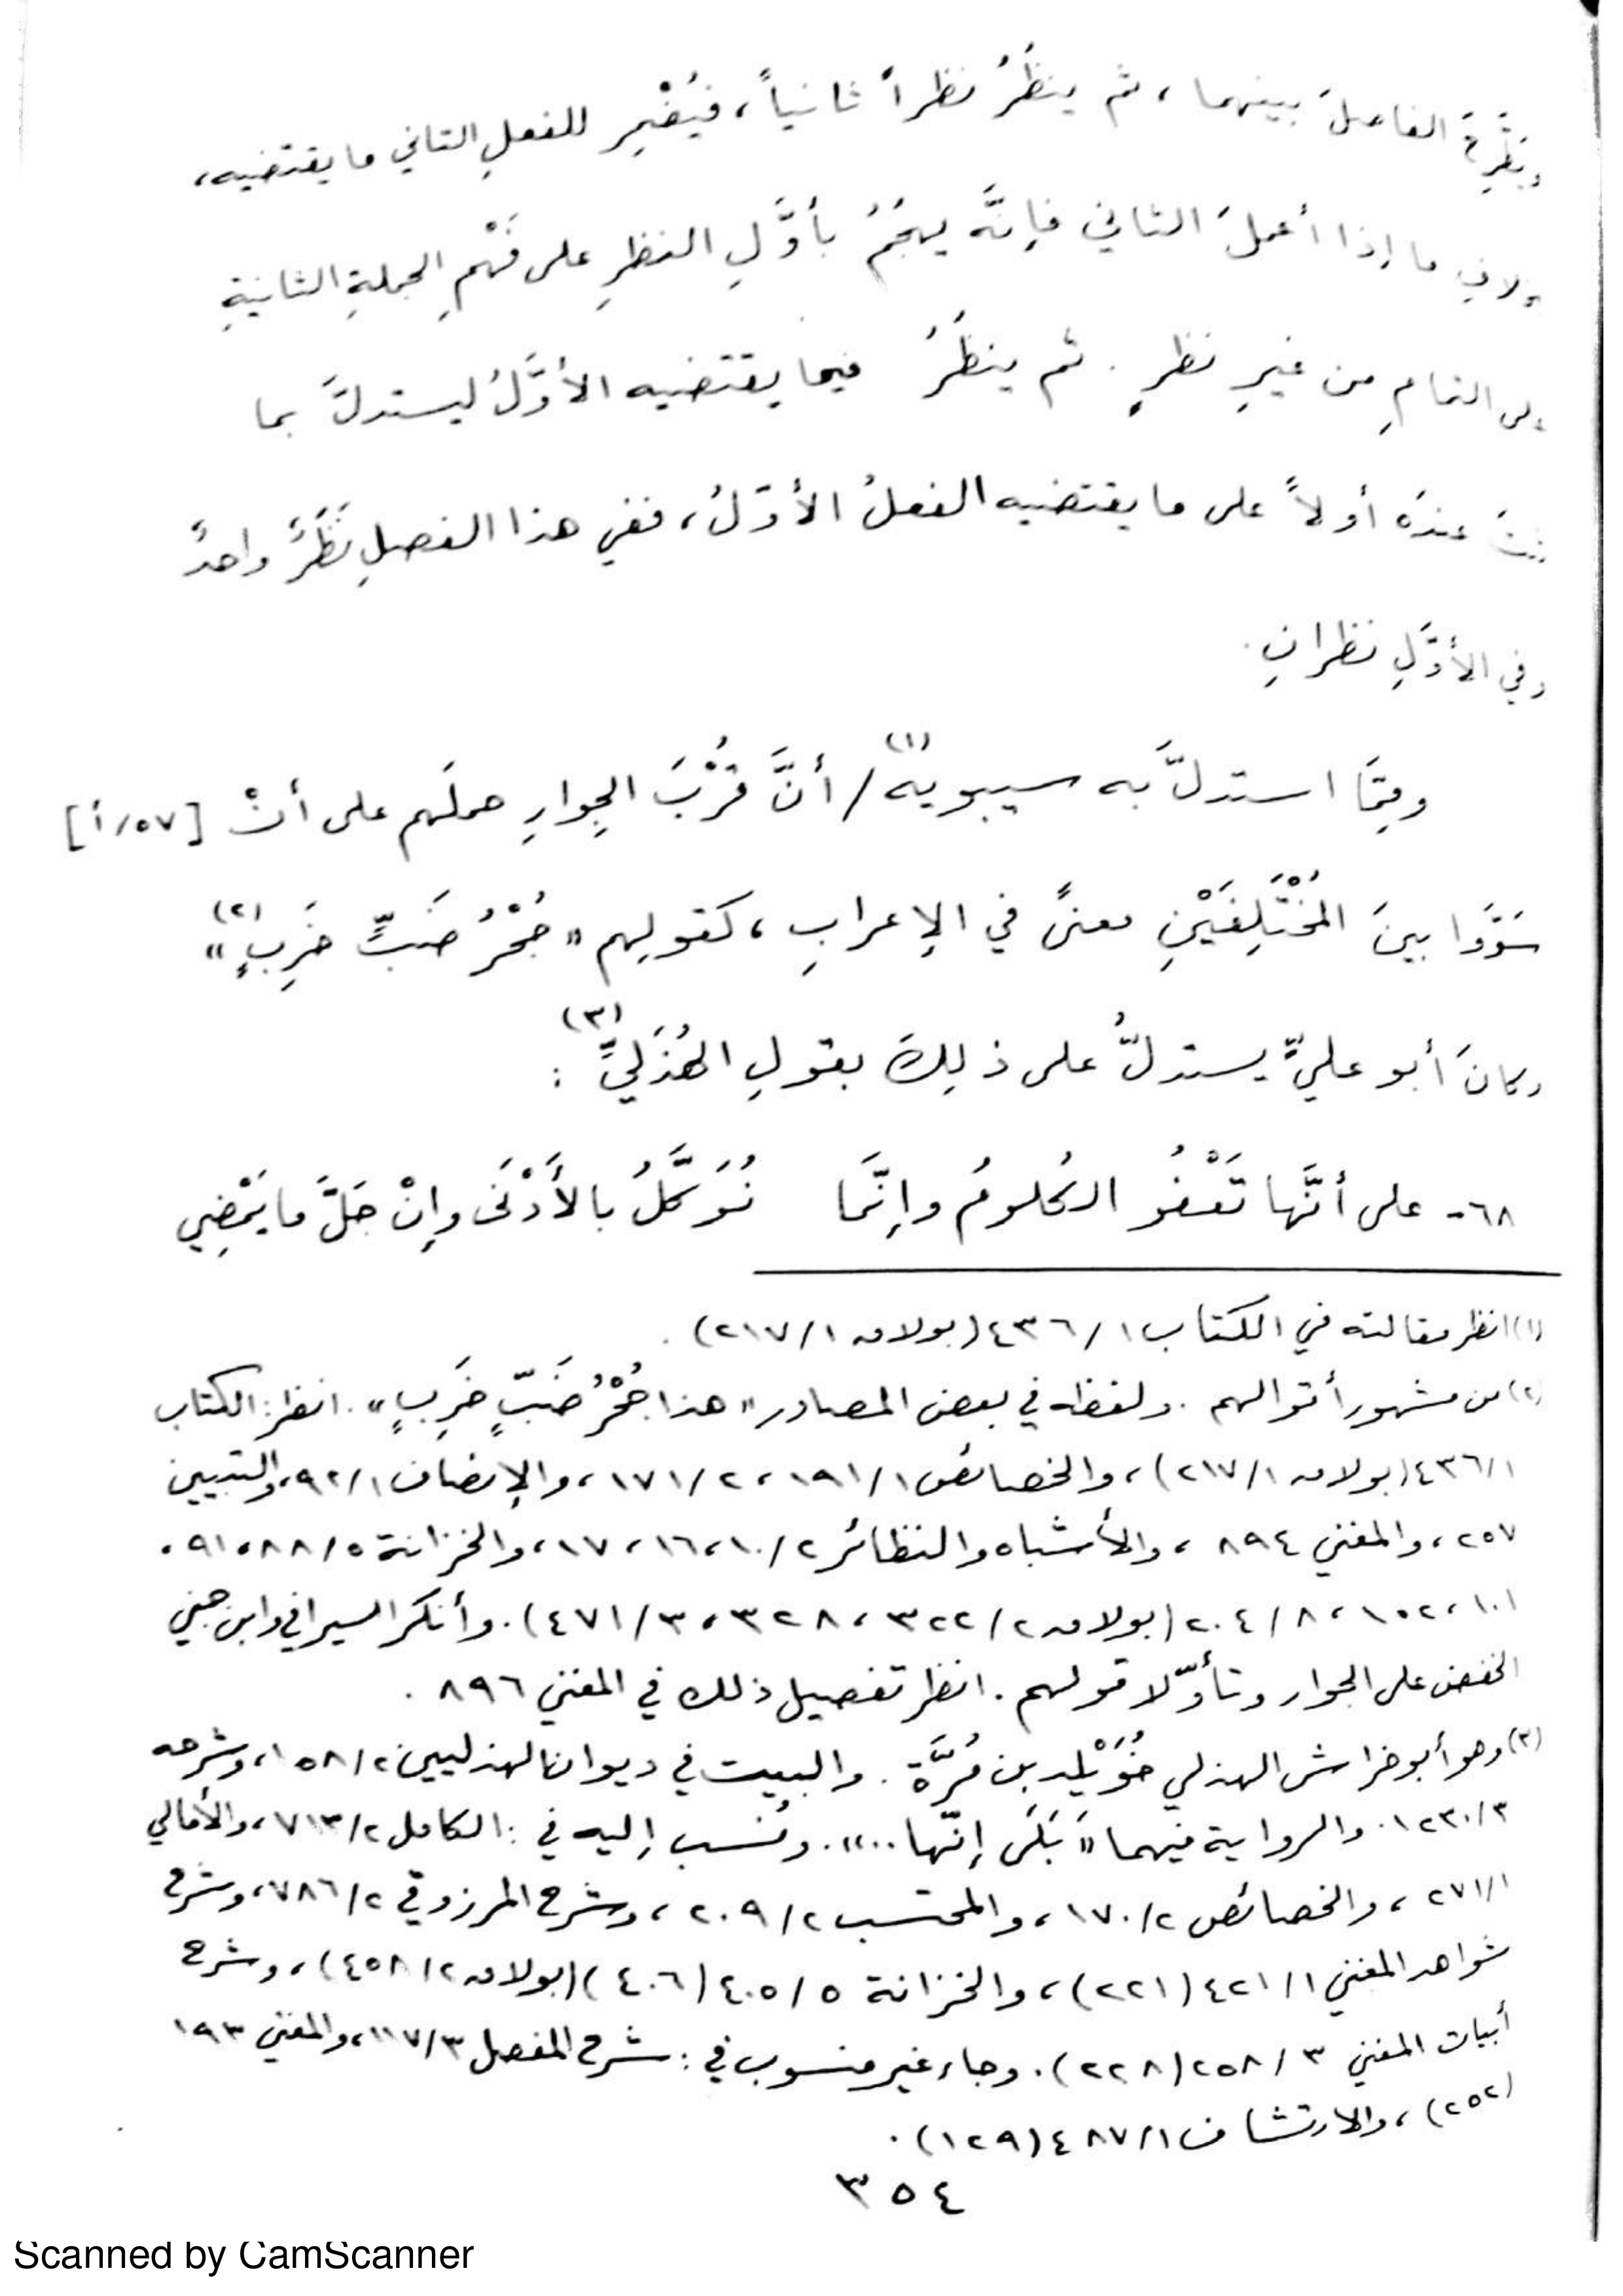 الفاصلَ بينهما، ثم ينظُرُ نظراً ثانياً، فيُضْمِر للفعلِ الثاني ما يقتضيه،
ما إذا أعملَ الثاني فإنَّه يهجُمُ بأوَّلِ النظرِ على فَهْمِ الجملةِ الثانيةِ
التمامِ من غيرِ نظرٍ. ثم ينظُرُ فيما يقتضيه الأوَّلُ ليستدلَّ بما
عندَه أولاً على ما يقتضيه الفعلُ الأوّلُ، ففي هذا الفصلِ نَظَرٌ واحدٌ
وفي الأوَّلِ نظرانِ.
ومِمَّا استدلَّ به سيبويهُ(١) / أنَّ قُرْبَ الجِوارِ حملَهم على أنْ [٥٧/أ]
سَوَّوا بينَ المُخْتَلِفَيْنِ معنىً في الإعرابِ، كقولِهم «جُحْرُ ضَبٍّ خَرِبٍ(٢)»
وكانَ أبو عليٍّ يستدلُّ على ذلِكَ بقولِ الهُذَلِيِّ(٣) :
٦٨- على أنَّها تَعْفُو الكُلومُ وإنَّما نُوَكَّلُ بالأَدْنَى وإنْ جَلَّ ما يَمْضِي
(١) انظر مقالته في الكتاب ٤٣٦/١ (بولاق ٢١٧/١).
(٢) من مشهور أقوالهم. ولفظه في بعض المصادر «هذا جُحْرُ ضَبٍّ خَرِبٍ». انظر: الكتاب
٤٣٦/١ (بولاق ٢١٧/١)، والخصائص ١٩١/١، ١٧١/٢، والإنصاف ٩٢/١، والتبيين
٢٥٧، والمغني ٨٩٤، والأشباه والنظائر ١٠/٢، ١٦، ١٧، والخزانة ٨٨/٥، ٩١،
١٠١، ١٠٢، ٢٠٤/٨ (بولاق ٣٢٢/٢، ٣٢٨، ٤٧١/٣). وأنكر السيرافي وابن جني
الخفض على الجوار وتأوّلا قولهم. انظر تفصيل ذلك في المغني ٨٩٦.
(٣) وهو أبو خراش الهذلي خُوَيْلِد بن مُرَّة. والبيت في ديوان الهذليين ١٥٨/٢، وشرحه
١٢٣٠/٣. والرواية فيهما «بَلَى إنّها..». ونُسب إليه في: الكامل ٧١٣/٢، والأمالي
٢٧١/١، والخصائص ١٧٠/٢، والمحتسب ٢٠٩/٢، وشرح المرزوقي ٧٨٦/٢، وشرح
شواهد المغني ٤٢١/١ (٢٢١)، والخزانة ٤٠٥/٥ (٤٠٦) (بولاق ٤٥٨/٢)، وشرح
أبيات المغني ٢٥٨/٣ (٢٢٨). وجاء غير منسوب في: شرح المفصل ١١٧/٣، والمغني ١٩٣
(٢٥٢)، والارتشاف ٤٨٧/١ (١٢٩).
٣٥٤
Scanned by CamScanner